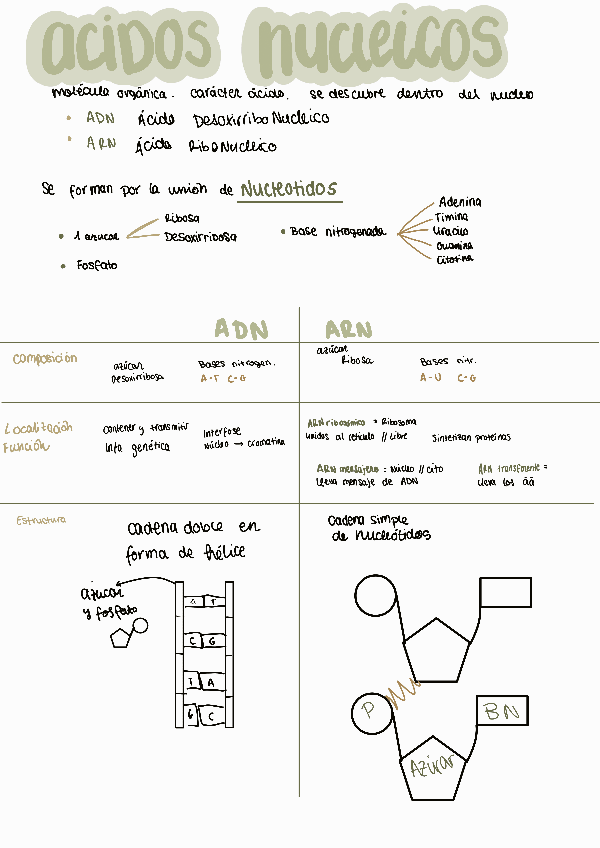 acidos nucleicos
molécula orgánica. carácter ácido. se descubre dentro del nucleo
• ADN Ácido Desoxirribo Nucleico
• ARN Ácido Ribo Nucleico
Se forman por la unión de Nucleotidos
• 1 azucar
Ribosa
Desoxirribosa
• Fosfato
• Base nitrogenada
Adenina
Timina
Uracilo
Guanina
Citotina
ADN
ARN
composición
azúcar
Desoxirribosa
Bases nitrogen.
A-T C-G
azúcar
Ribosa
Bases nitr.
A-U C-G
Localización
Función
contener y transmitir
info genética
Interfase
núcleo → cromatina
ARN ribosómico = Ribosoma
unidos al retículo // libre
Sintetizan proteínas
ARN mensajero = núcleo // cito
lleva mensaje de ADN
ARN transferente =
lleva los áá
Estructura
cadena doble en
forma de hélice
azucar
y fosfato
A T
C G
T A
G C
cadena simple
de nucleótidos
P
BN
Azúcar